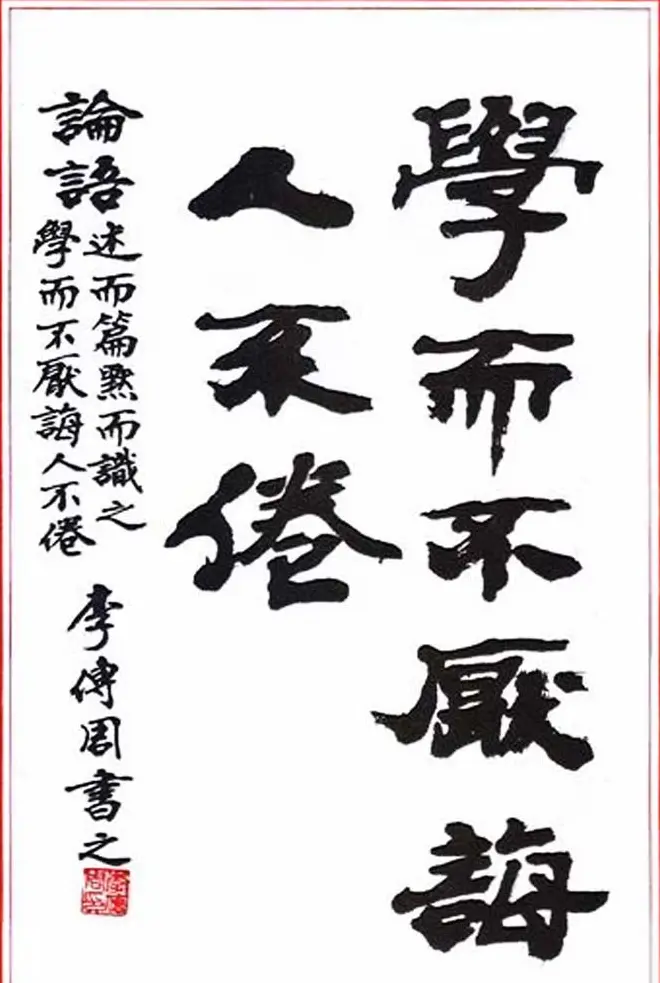 學而不厭誨
人不倦
論語述而篇默而識之
學而不厭誨人不倦
李傳周書之